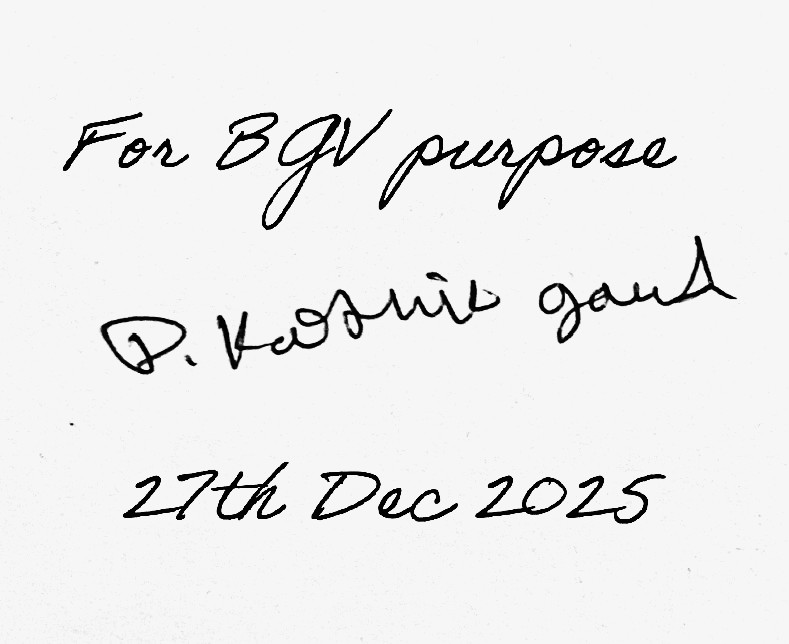 For BGV purpose
P. Karthik goud
27th Dec 2025